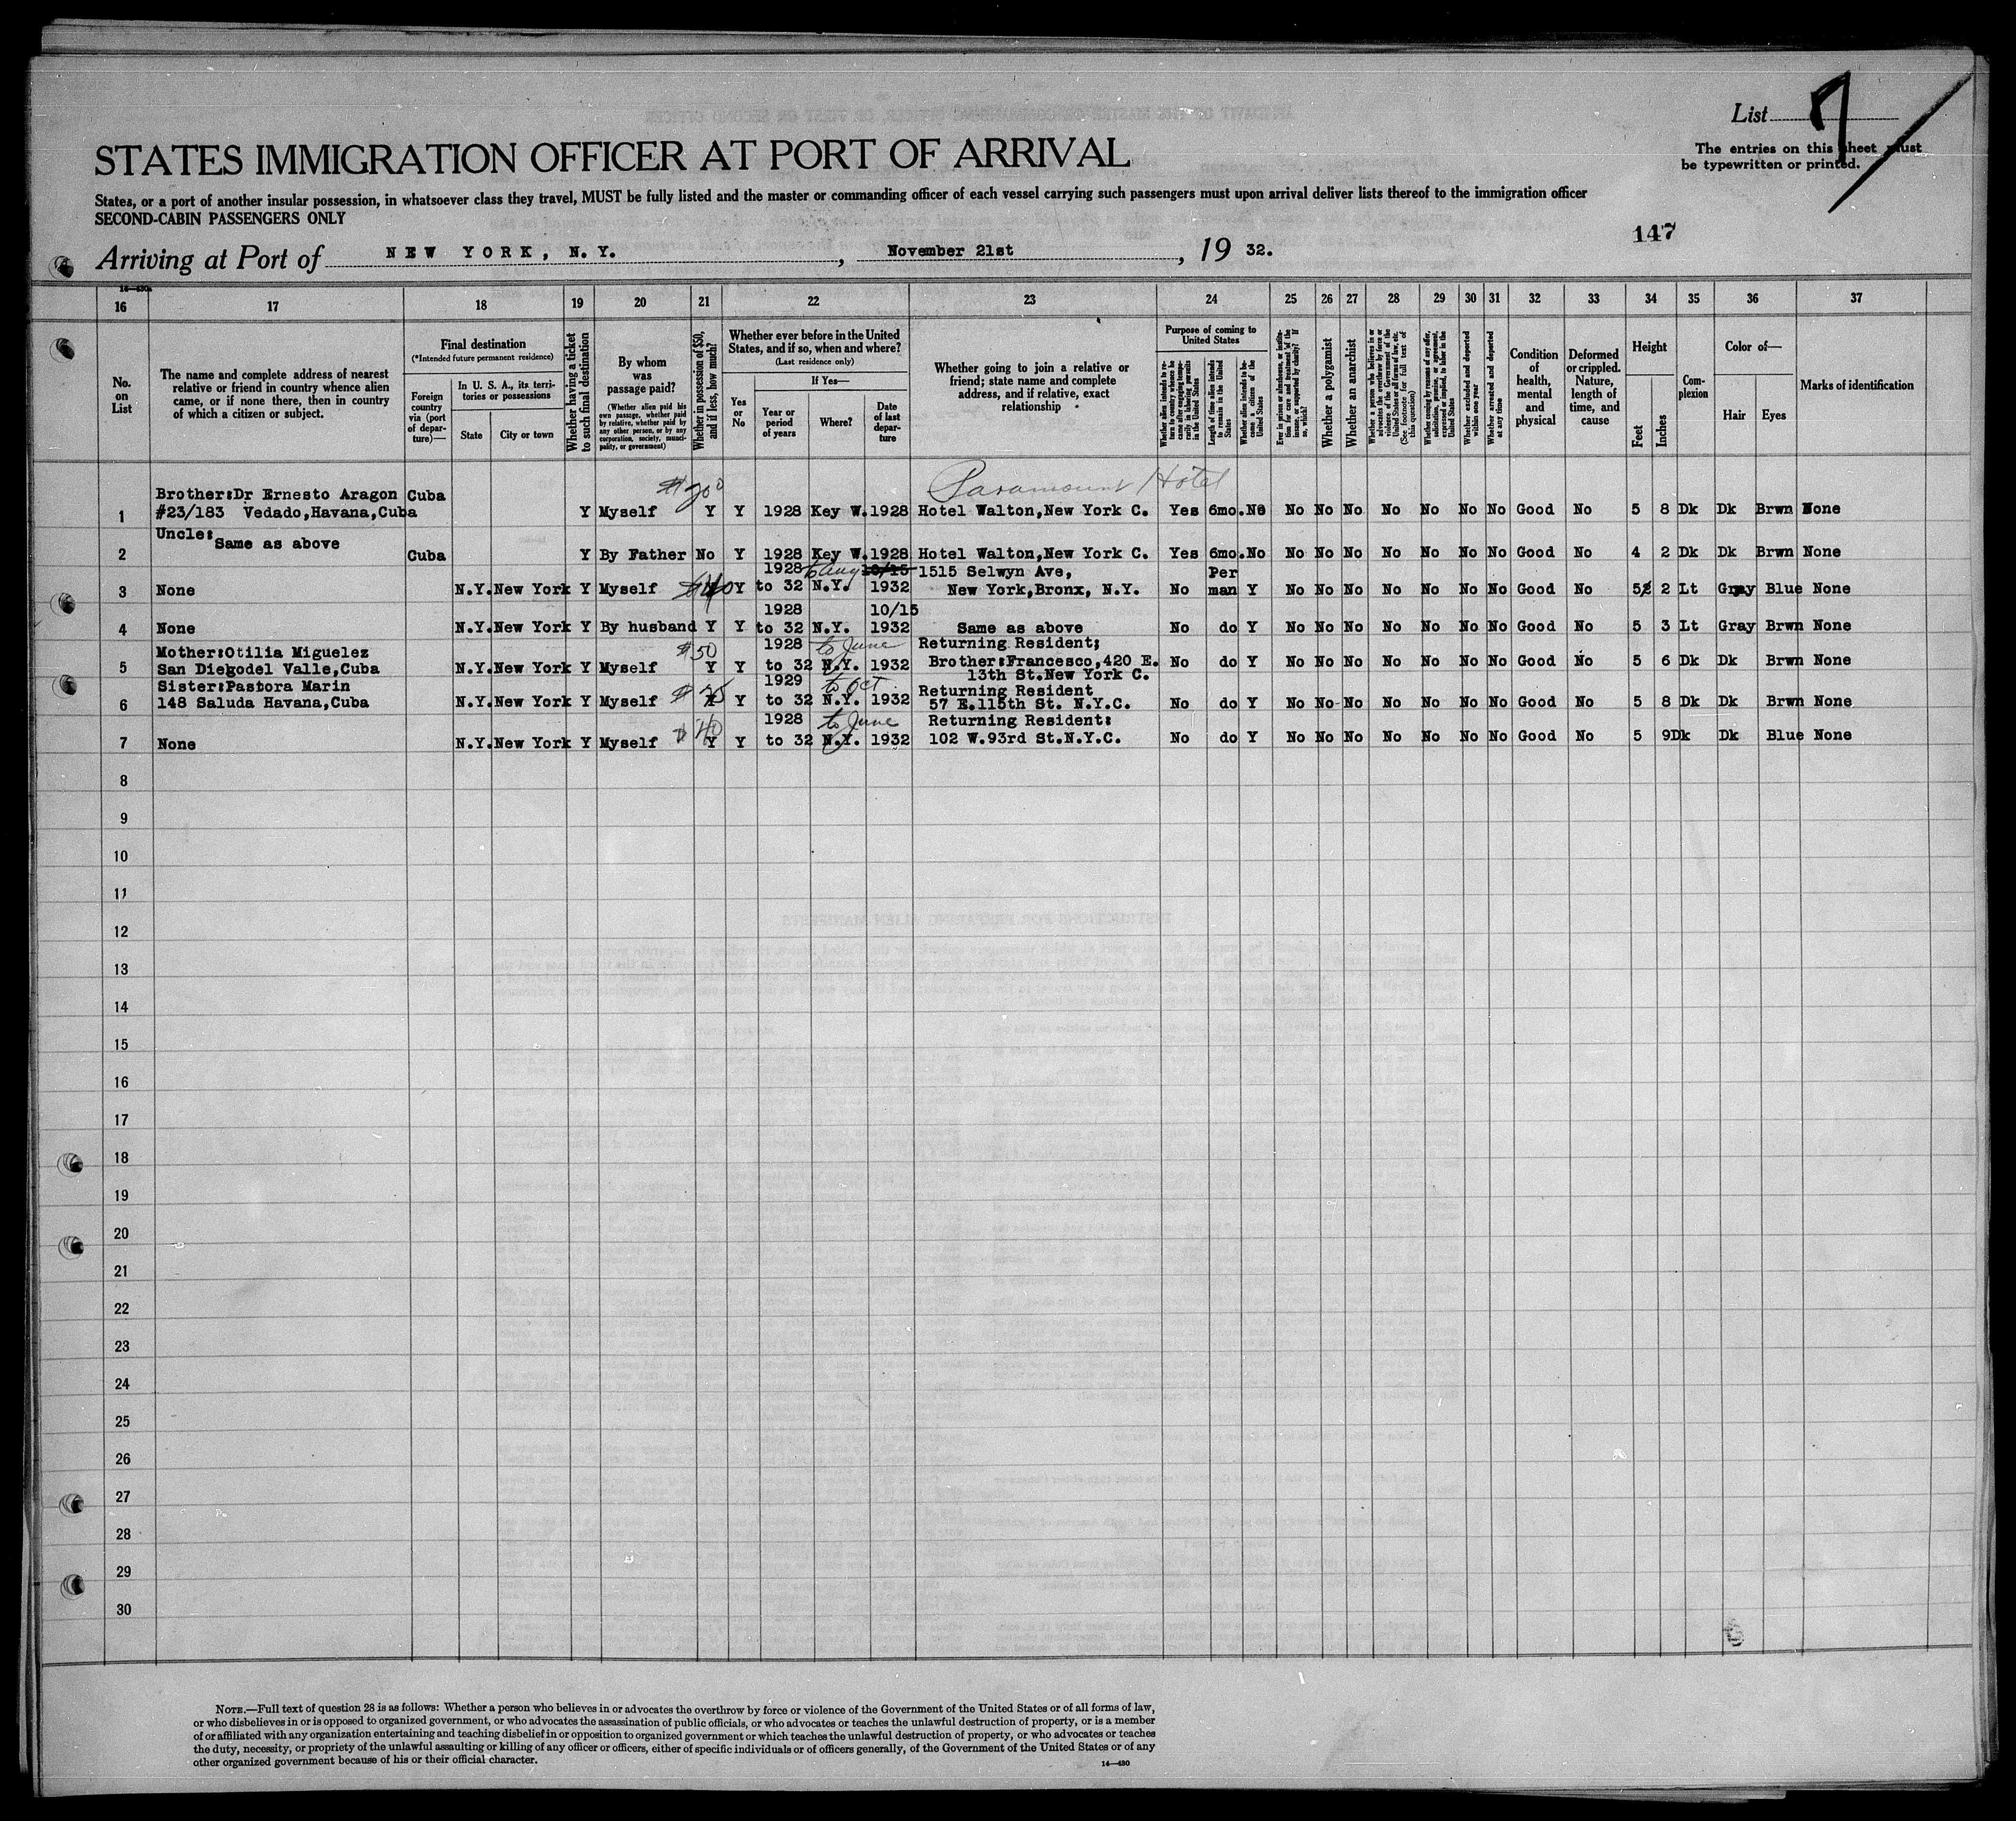 List 7
The entries on this sheet must
be typewritten or printed.
STATES IMMIGRATION OFFICER AT PORT OF ARRIVAL
States, or a port of another insular possession, in whatsoever class they travel, MUST be fully listed and the master or commanding officer of each vessel carrying such passengers must upon arrival deliver lists thereof to the immigration officer
SECOND-CABIN PASSENGERS ONLY
147
Arriving at Port of NEW YORK, N.Y. , November 21st , 19 32.
16 17 18 19 20 21 22 23 24 25 26 27 28 29 30 31 32 33 34 35 36 37
No. on List
The name and complete address of nearest
relative or friend in country whence alien
came, or if none there, then in country
of which a citizen or subject.
Final destination
(*Intended future permanent residence)
Foreign country via (port of departure)—
In U. S. A., its territories or possessions
State
City or town
Whether having a ticket to such final destination
By whom was passage paid?
(Whether alien paid his own passage, whether paid by relative, whether paid by any other person, or by any corporation, society, municipality, or government)
Whether in possession of $50, and if less, how much?
Whether ever before in the United States, and if so, when and where?
(Last residence only)
Yes or No
If Yes—
Year or period of years
Where?
Date of last departure
Whether going to join a relative or
friend; state name and complete
address, and if relative, exact
relationship
Purpose of coming to United States
Whether alien intends to return to country whence he came after engaging temporarily in laboring pursuits in the United States
Length of time alien intends to remain in the United States
Whether alien intends to become a citizen of the United States
Ever in prison or almshouse, or institution for care and treatment of the insane, or supported by charity? If so, which?
Whether a polygamist
Whether an anarchist
Whether a person who believes in or advocates the overthrow by force or violence of the Government of the United States or all forms of law, etc. (See footnote for full text of this question)
Whether coming by reason of any offer, solicitation, promise, or agreement, expressed or implied, to labor in the United States
Whether excluded and deported within one year
Whether arrested and deported at any time
Condition of health, mental and physical
Deformed or crippled. Nature, length of time, and cause
Height
Feet
Inches
Complexion
Color of—
Hair
Eyes
Marks of identification
$200 Paramount Hotel
Brother:Dr Ernesto Aragon Cuba
1 #23/183 Vedado,Havana,Cuba Y Myself Y Y 1928 Key W. 1928 Hotel Walton,New York C. Yes 6mo. No No No No No No No No Good No 5 8 Dk Dk Brwn None
Uncle:
Same as above
2 Cuba Y By Father No Y 1928 Key W. 1928 Hotel Walton,New York C. Yes 6mo. No No No No No No No No Good No 4 2 Dk Dk Brwn None
1928 to aug 10/15 1515 Selwyn Ave, Per
3 None N.Y. New York Y Myself $40 Y to 32 N.Y. 1932 New York,Bronx, N.Y. No man Y No No No No No No No Good No 5 2 Lt Gray Blue None
1928 10/15
4 None N.Y. New York Y By husband Y Y to 32 N.Y. 1932 Same as above No do Y No No No No No No No Good No 5 3 Lt Gray Brwn None
Mother:Otilia Miguelez $50 1928 to June Returning Resident;
5 San Diegodel Valle,Cuba N.Y. New York Y Myself Y Y to 32 N.Y. 1932 Brother:Francesco,420 E. No do Y No No No No No No No Good No 5 6 Dk Dk Brwn None
13th St.New York C.
Sister:Pastora Marin 1929 to Oct Returning Resident
6 148 Saluda Havana,Cuba N.Y. New York Y Myself Y Y to 32 N.Y. 1932 57 E.115th St. N.Y.C. No do Y No No No No No No No Good No 5 8 Dk Dk Brwn None
$40 1928 to June Returning Resident:
7 None N.Y. New York Y Myself Y Y to 32 N.Y. 1932 102 W.93rd St.N.Y.C. No do Y No No No No No No No Good No 5 9 Dk Dk Blue None
8
9
10
11
12
13
14
15
16
17
18
19
20
21
22
23
24
25
26
27
28
29
30
NOTE.—Full text of question 28 is as follows: Whether a person who believes in or advocates the overthrow by force or violence of the Government of the United States or of all forms of law,
or who disbelieves in or is opposed to organized government, or who advocates the assassination of public officials, or who advocates or teaches the unlawful destruction of property, or is a member
of or affiliated with any organization entertaining and teaching disbelief in or opposition to organized government or which teaches the unlawful destruction of property, or who advocates or teaches
the duty, necessity, or propriety of the unlawful assaulting or killing of any officer or officers, either of specific individuals or of officers generally, of the Government of the United States or of any
other organized government because of his or their official character.
14—430